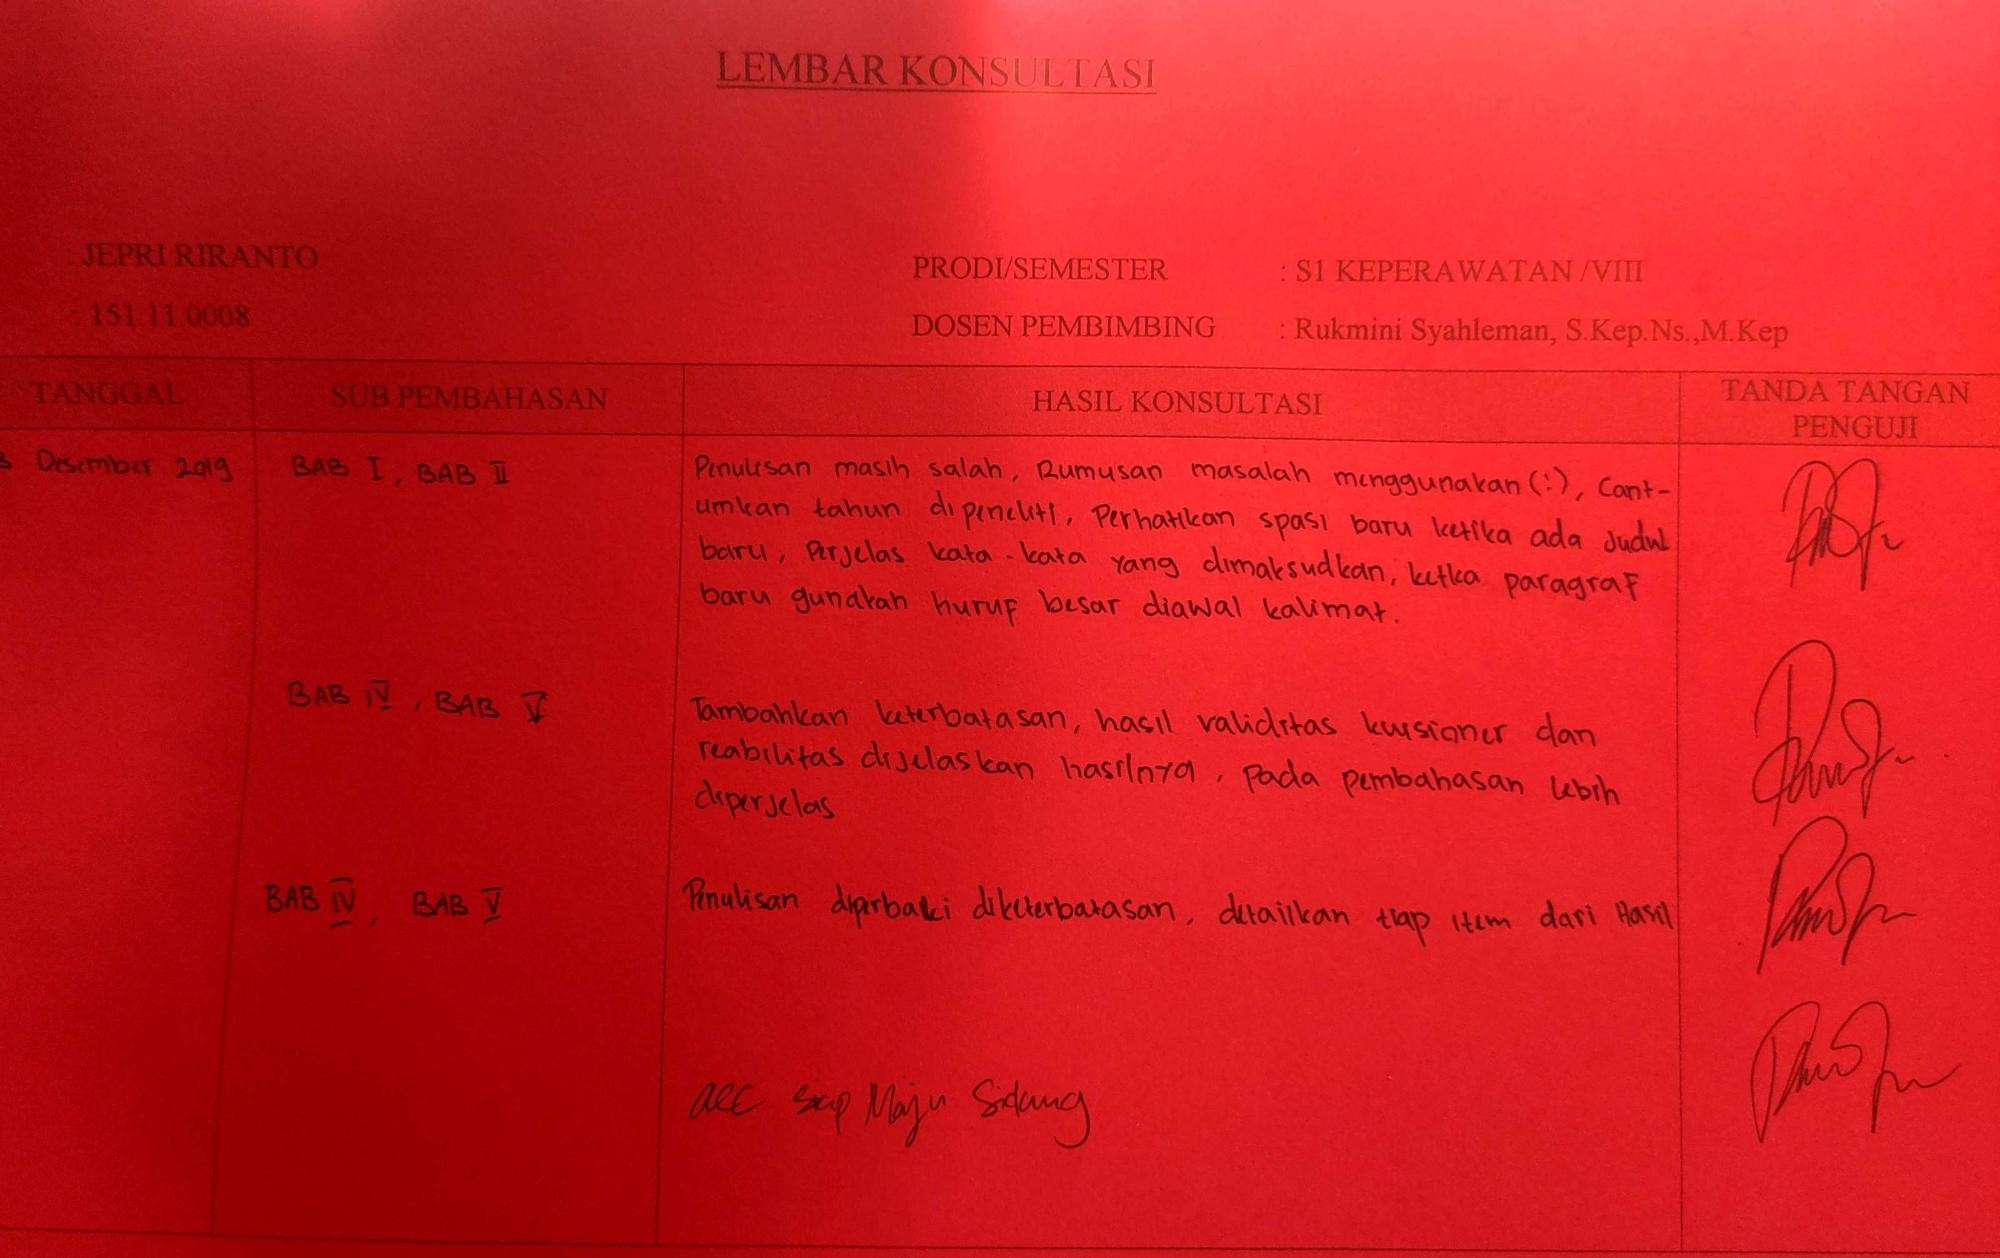 LEMBAR KONSULTASI
: JEPRI RIRANTO
PRODI/SEMESTER : S1 KEPERAWATAN /VIII
: 151.11.0008
DOSEN PEMBIMBING : Rukmini Syahleman, S.Kep.Ns.,M.Kep
TANGGAL SUB PEMBAHASAN HASIL KONSULTASI TANDA TANGAN PENGUJI
Desember 2019 BAB I, BAB II Penulisan masih salah, Rumusan masalah menggunakan (:), Cant-
umkan tahun dipeneliti, Perhatikan spasi baru ketika ada Judul
baru, Perjelas kata-kata yang dimaksudkan, ketka paragraf
baru gunakan huruf besar diawal kalimat.
BAB IV, BAB V Tambahkan keterbatasan, hasil validitas kuisioner dan
reabilitas dijelaskan hasilnya, pada pembahasan lebih
diperjelas
BAB IV, BAB V Penulisan diperbaiki diketerbatasan, detailkan tiap item dari Hasil
acc Siap Maju Sidang